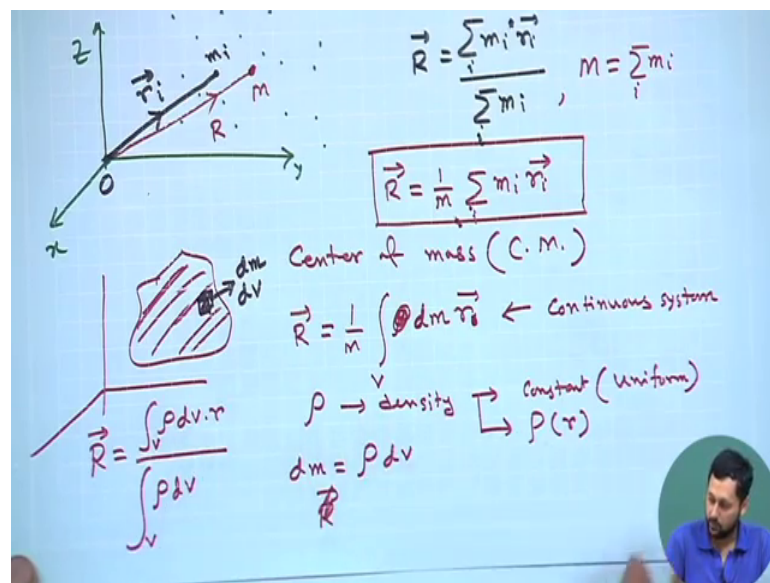 Z
m_i
\vec{r_i}
M
R
O
y
x
\vec{R} = \frac{\sum_i m_i \vec{r_i}}{\sum_i m_i} , M = \sum_i m_i
\vec{R} = \frac{1}{M} \sum_i m_i \vec{r_i}
Center of mass (C.M.)
dm
dV
\vec{R} = \frac{1}{M} \int_V dm \vec{r} ← continuous system
ρ → density → constant (uniform)
→ ρ(r)
\vec{R} = \frac{\int_V ρ dV · r}{\int_V ρ dV}
dm = ρ dV
\vec{R}